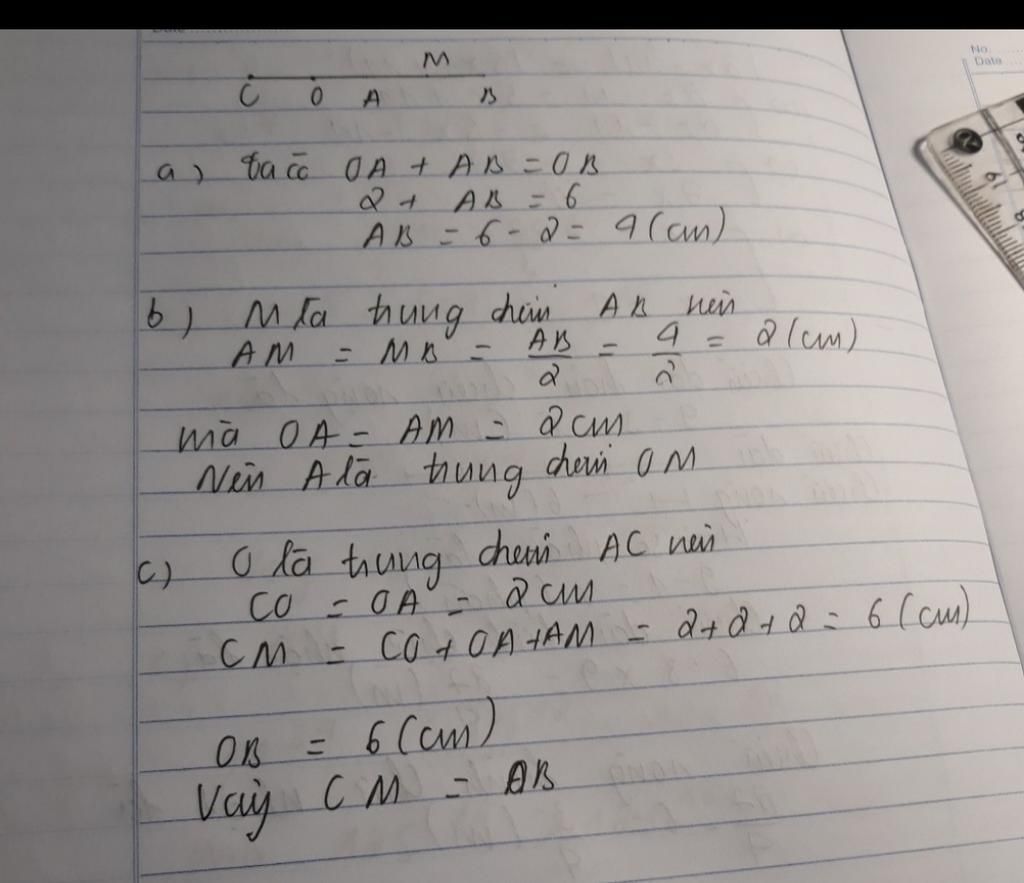 M
C O A B
a) ta có OA + AB = OB
2 + AB = 6
AB = 6 - 2 = 4 (cm)
b) M là trung điểm AB nên
AM = MB = AB/2 = 4/2 = 2 (cm)
mà OA = AM = 2cm
Nên A là trung điểm OM
c) O là trung điểm AC nên
CO = OA = 2cm
CM = CO + OA + AM = 2+2+2 = 6 (cm)
OB = 6 (cm)
Vậy CM = OB
No.
Date